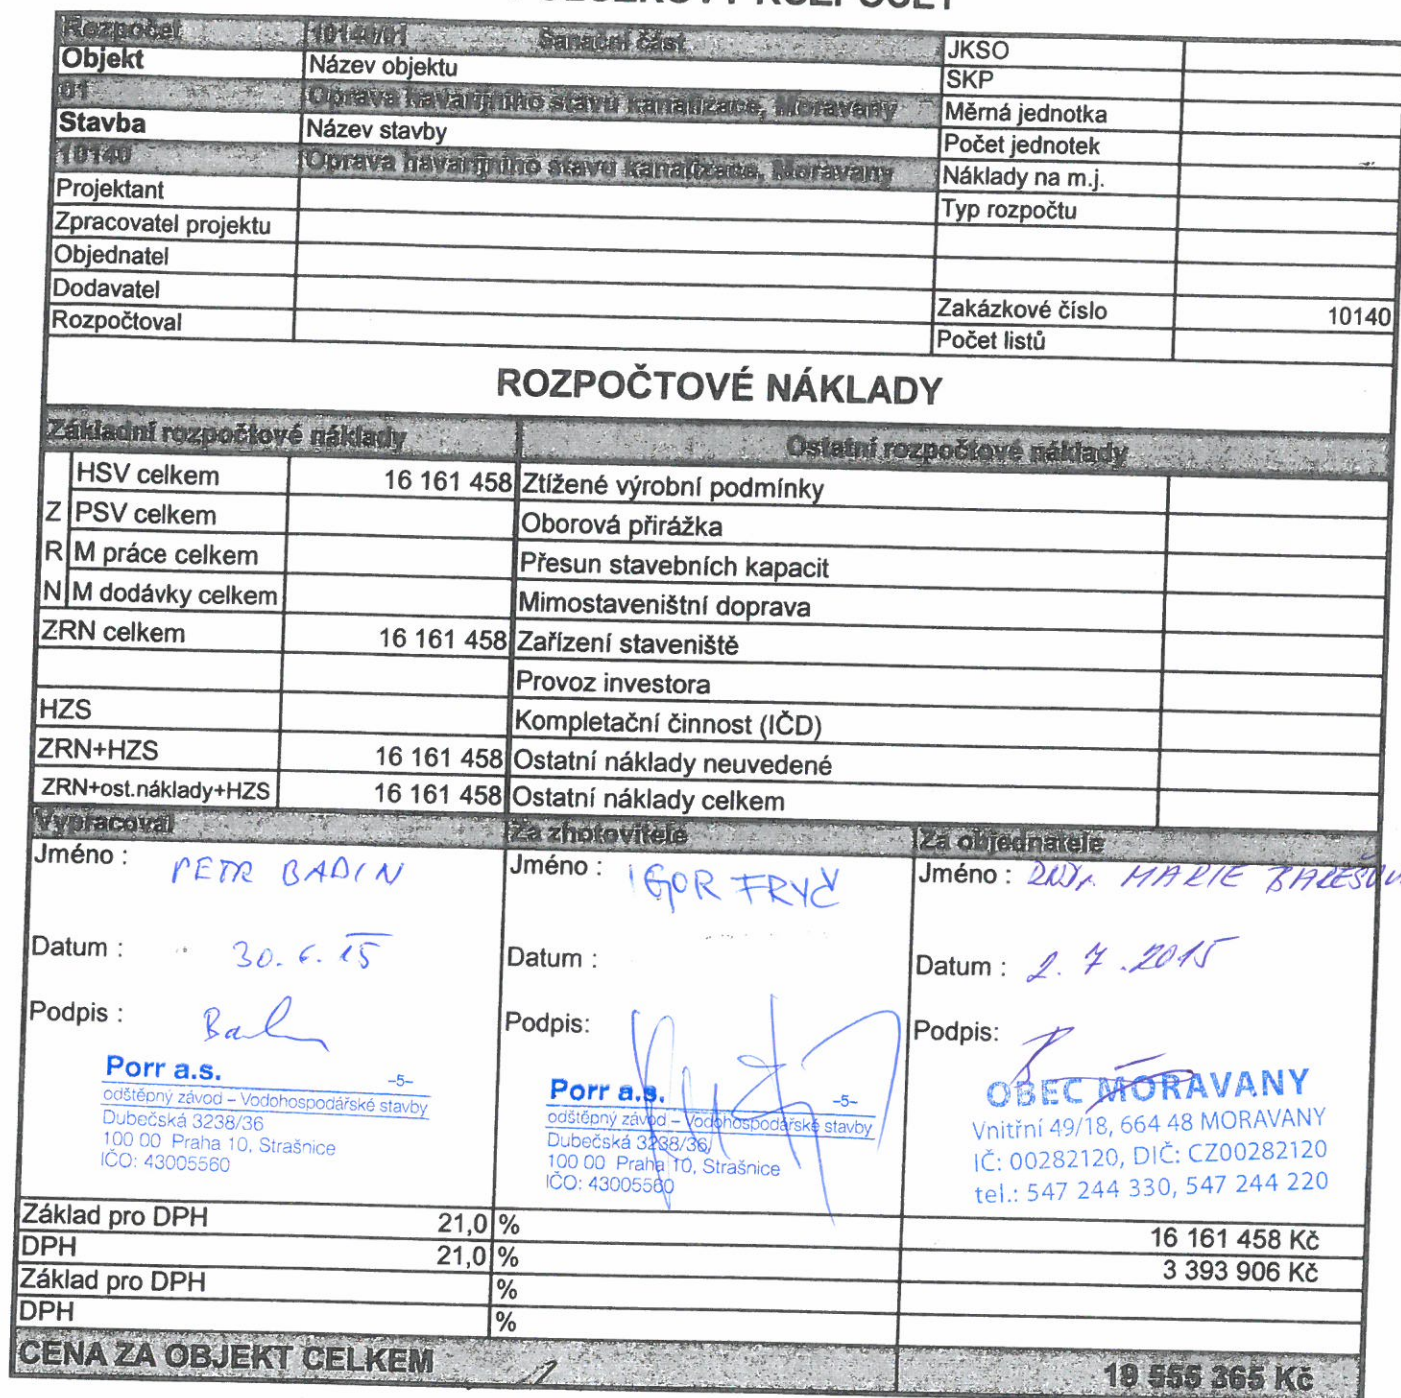 Rozpočet 10140/01 Sanační část JKSO
Objekt Název objektu SKP
01 Oprava havarijního stavu kanalizace, Moravany Měrná jednotka
Stavba Název stavby Počet jednotek
10140 Oprava havarijního stavu kanalizace, Moravany Náklady na m.j.
Projektant Typ rozpočtu
Zpracovatel projektu
Objednatel
Dodavatel Zakázkové číslo 10140
Rozpočtoval Počet listů
ROZPOČTOVÉ NÁKLADY
Základní rozpočtové náklady Ostatní rozpočtové náklady
HSV celkem 16 161 458 Ztížené výrobní podmínky
Z PSV celkem Oborová přirážka
R M práce celkem Přesun stavebních kapacit
N M dodávky celkem Mimostaveništní doprava
ZRN celkem 16 161 458 Zařízení staveniště
Provoz investora
HZS Kompletační činnost (IČD)
ZRN+HZS 16 161 458 Ostatní náklady neuvedené
ZRN+ost.náklady+HZS 16 161 458 Ostatní náklady celkem
Vypracoval Za zhotovitele Za objednatele
Jméno : PETR BADIN Jméno : IGOR FRYČ Jméno : RNDr. MARIE
Datum : 30. 6. 15 Datum : Datum : 2. 7. 2015
Podpis : Podpis: Podpis:
Porr a.s. -5-
odštěpný závod – Vodohospodářské stavby
Dubečská 3238/36
100 00 Praha 10, Strašnice
IČO: 43005560
Porr a.s. -5-
odštěpný závod – Vodohospodářské stavby
Dubečská 3238/36
100 00 Praha 10, Strašnice
IČO: 43005560
OBEC MORAVANY
Vnitřní 49/18, 664 48 MORAVANY
IČ: 00282120, DIČ: CZ00282120
tel.: 547 244 330, 547 244 220
Základ pro DPH 21,0 % 16 161 458 Kč
DPH 21,0 % 3 393 906 Kč
Základ pro DPH %
DPH %
CENA ZA OBJEKT CELKEM 19 555 365 Kč